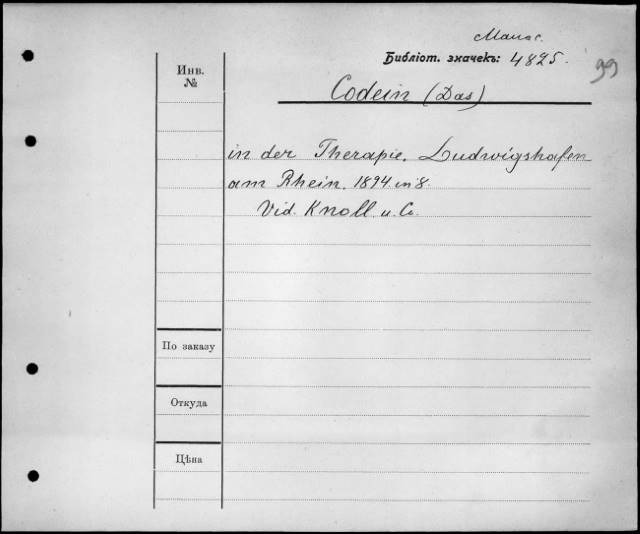 Манас.
Библіот. значекъ: 4825.
99
Инв.
№
Codein (Das)
in der Therapie. Ludwigshafen
am Rhein. 1894. in 8.
Vid. Knoll u. Co.
По заказу
Откуда
Цѣна